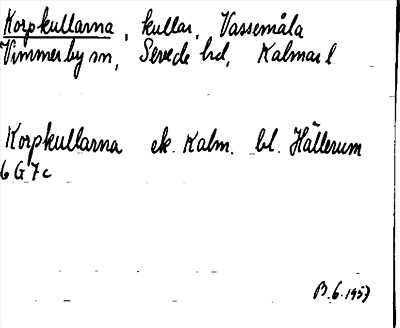 Korpkullarna, kullar, Vassemåla
Vimmerby sn, Sevede hd, Kalmar l.
Korpkullarna ek. Kalm. bl. Hällerum
6 G 7 c
B. 6. 1957